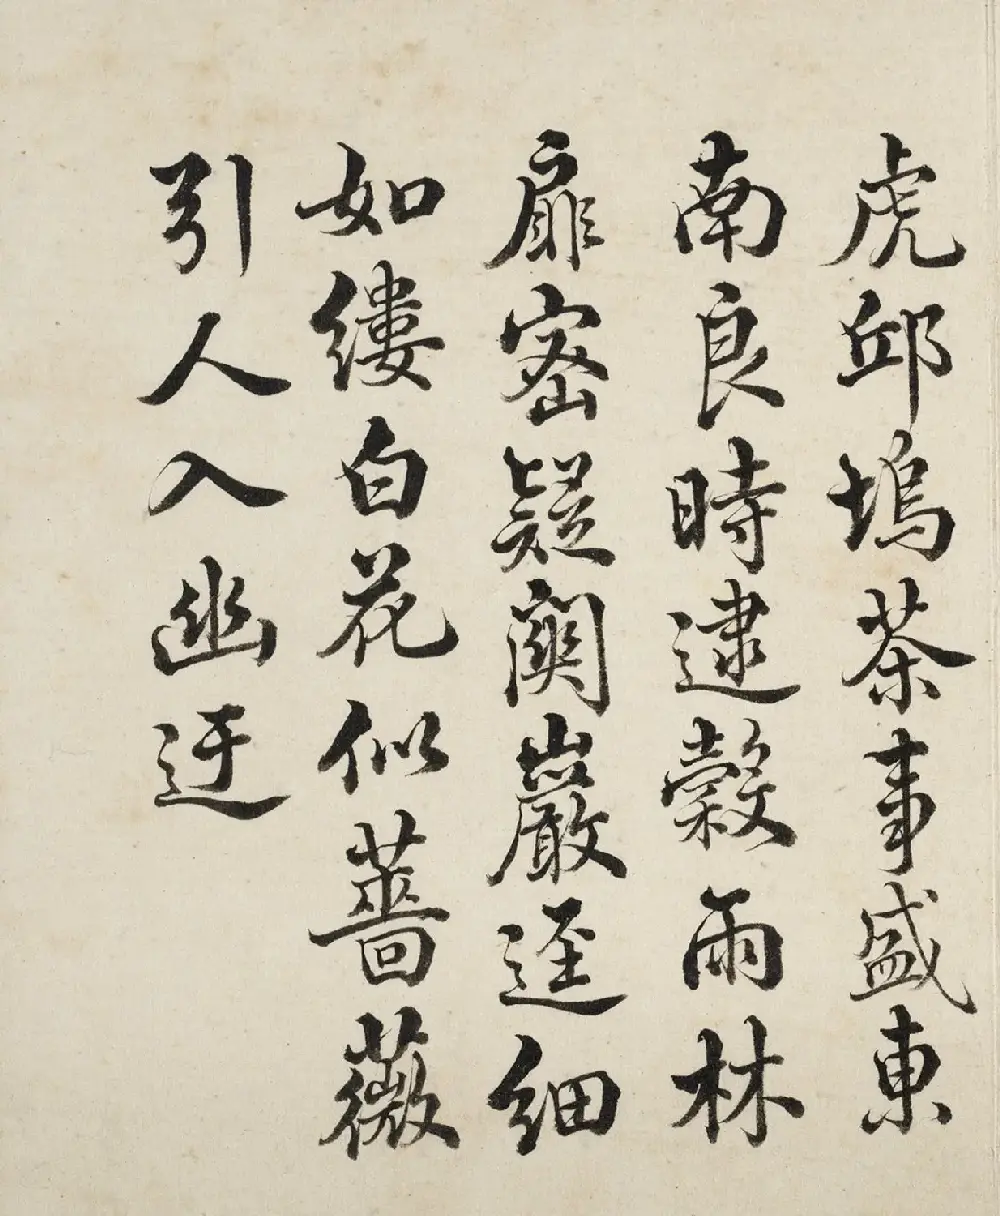 虎邱塢茶事盛東
南良時逮穀雨林
扉密疑關巖逕細
如縷白花似薔薇
引人入幽迂